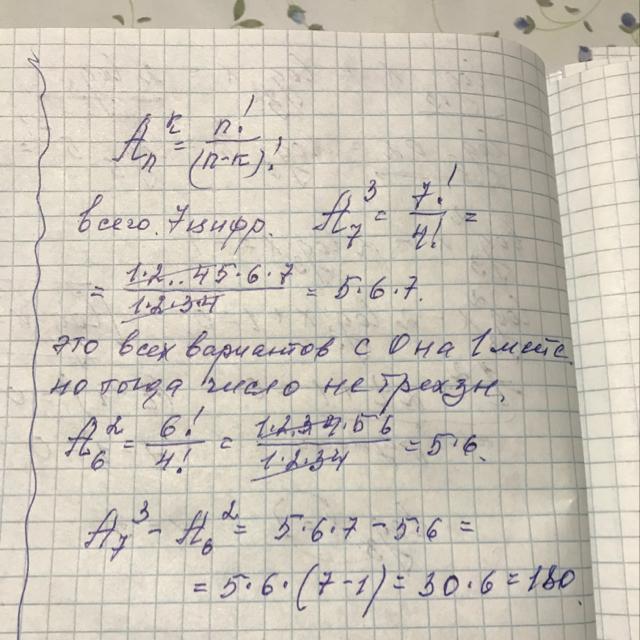 Aₙᵏ = n! / (n-k)!
всего 7 цифр. A₇³ = 7! / 4! =
= 1·2...4 5·6·7 / 1·2·3·4 = 5·6·7.
это всех вариантов с 0 на 1 месте
но тогда число не трехзн.
A₆² = 6! / 4! = 1·2·3·4·5 6 / 1·2·3 4 = 5·6.
A₇³ - A₆² = 5·6·7 - 5·6 =
= 5·6·(7-1) = 30·6 = 180